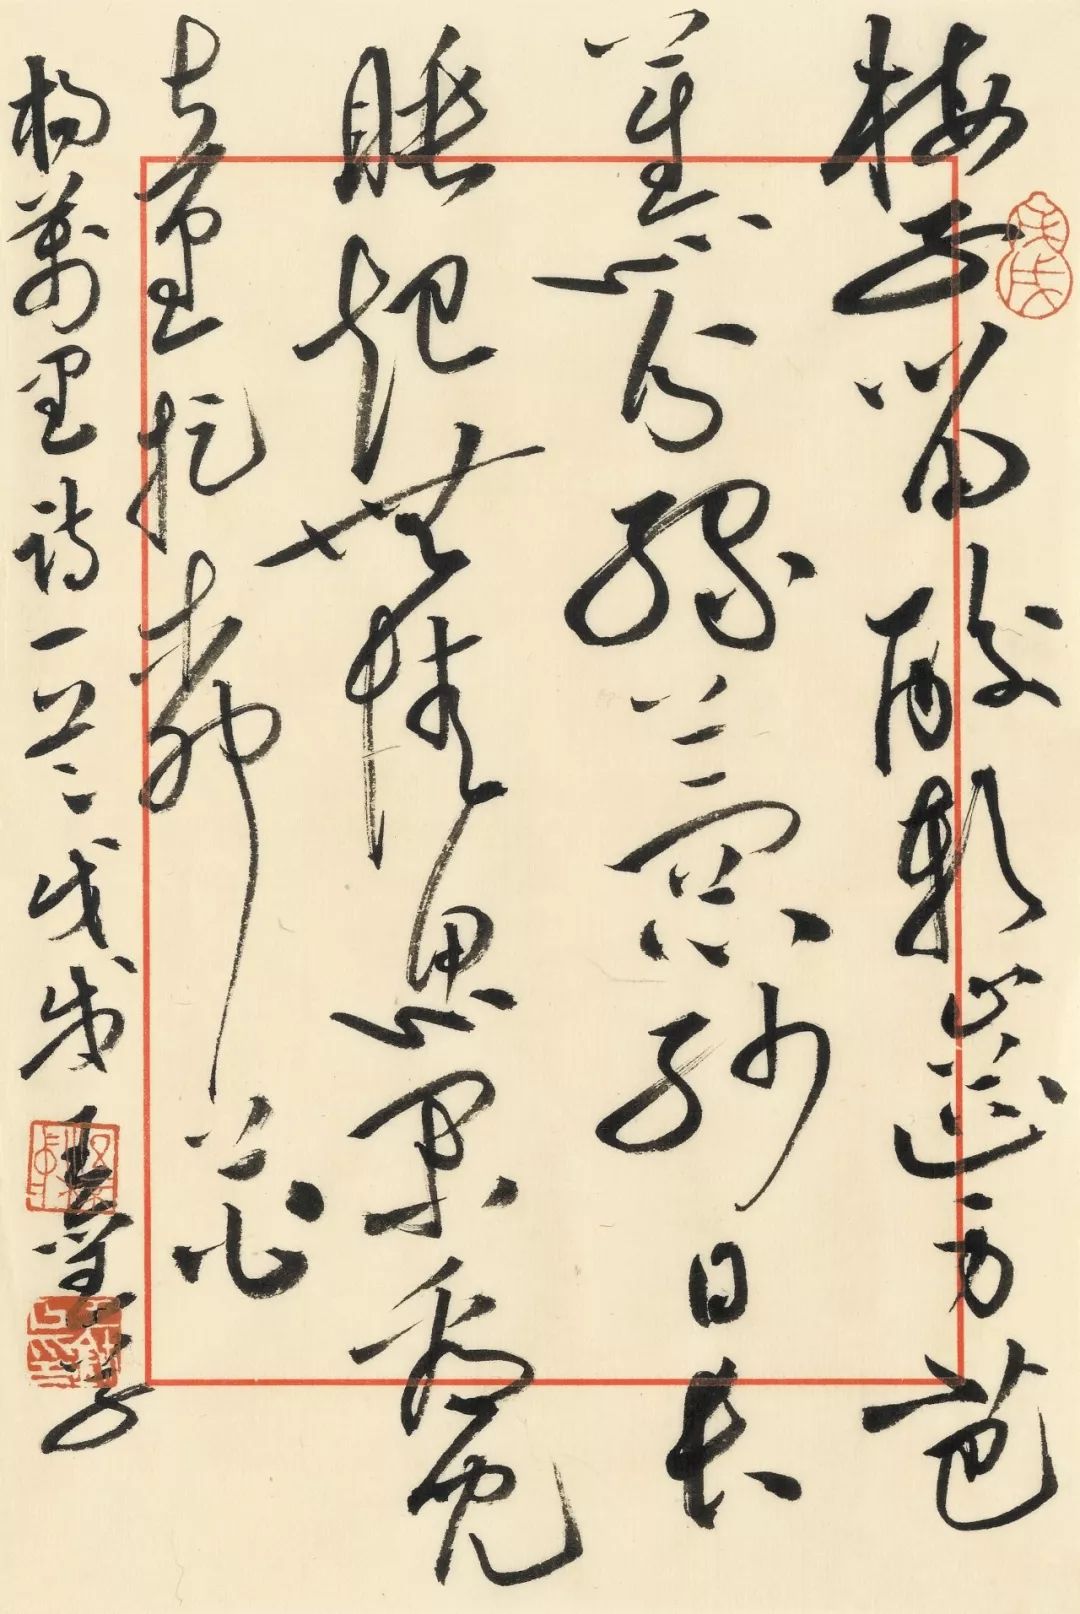 梅子留酸軟齒牙芭
蕉分緑與窗紗日長
睡起無情思閑看兒
童捉柳花
楊萬里詩一首戊戌